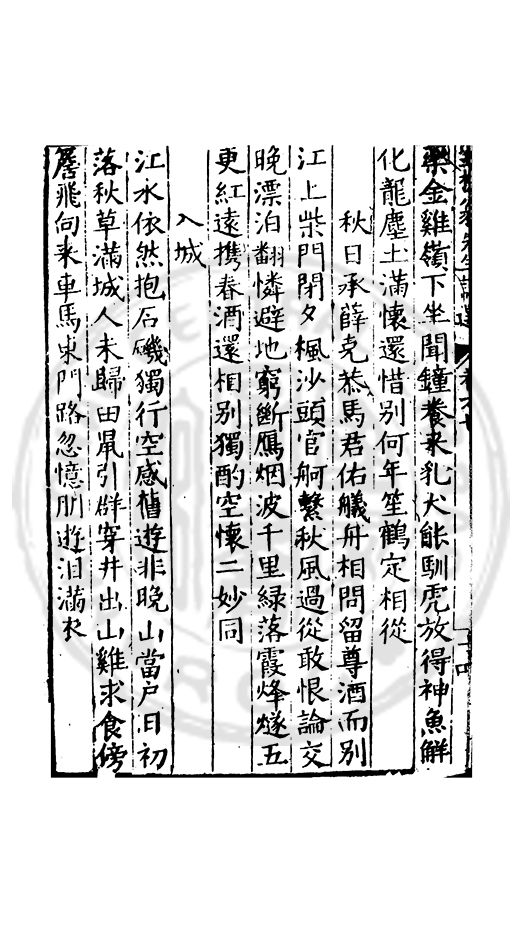 藥金雞嶺下坐聞鐘養来乳犬能馴虎放得神魚觧
化龍塵土滿懷還惜別何年笙鶴定相從
秋日承薛克恭馬君佑艤舟相問留尊酒而別
江上柴門閉夕楓沙頭官舸繫秋風過從敢恨論交
晚漂泊翻憐避地窮斷鴈烟波千里緑落霞烽燧五
更紅遠携春酒還相別獨酌空懷二妙同
入城
江水依然抱石磯獨行空感舊遊非晚山當户日初
落秋草滿城人未歸田鼠引群穿井出山雞求食傍
簷飛向来車馬東門路忽憶朋遊泪滿衣